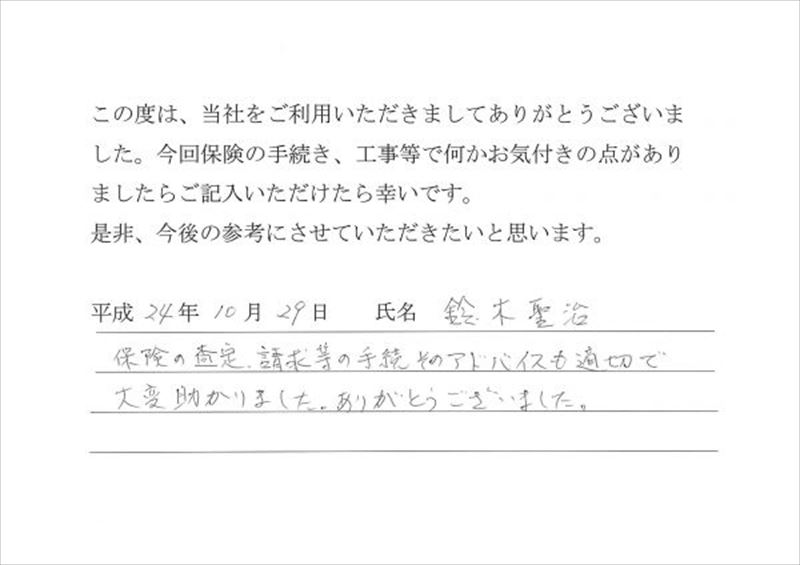 この度は、当社をご利用いただきましてありがとうございま
した。今回保険の手続き、工事等で何かお気付きの点があり
ましたらご記入いただけたら幸いです。
是非、今後の参考にさせていただきたいと思います。
平成 24年 10月 29日 氏名 鈴木聖治
保険の査定、請求等の手続そのアドバイスも適切で
大変助かりました。ありがとうございました。